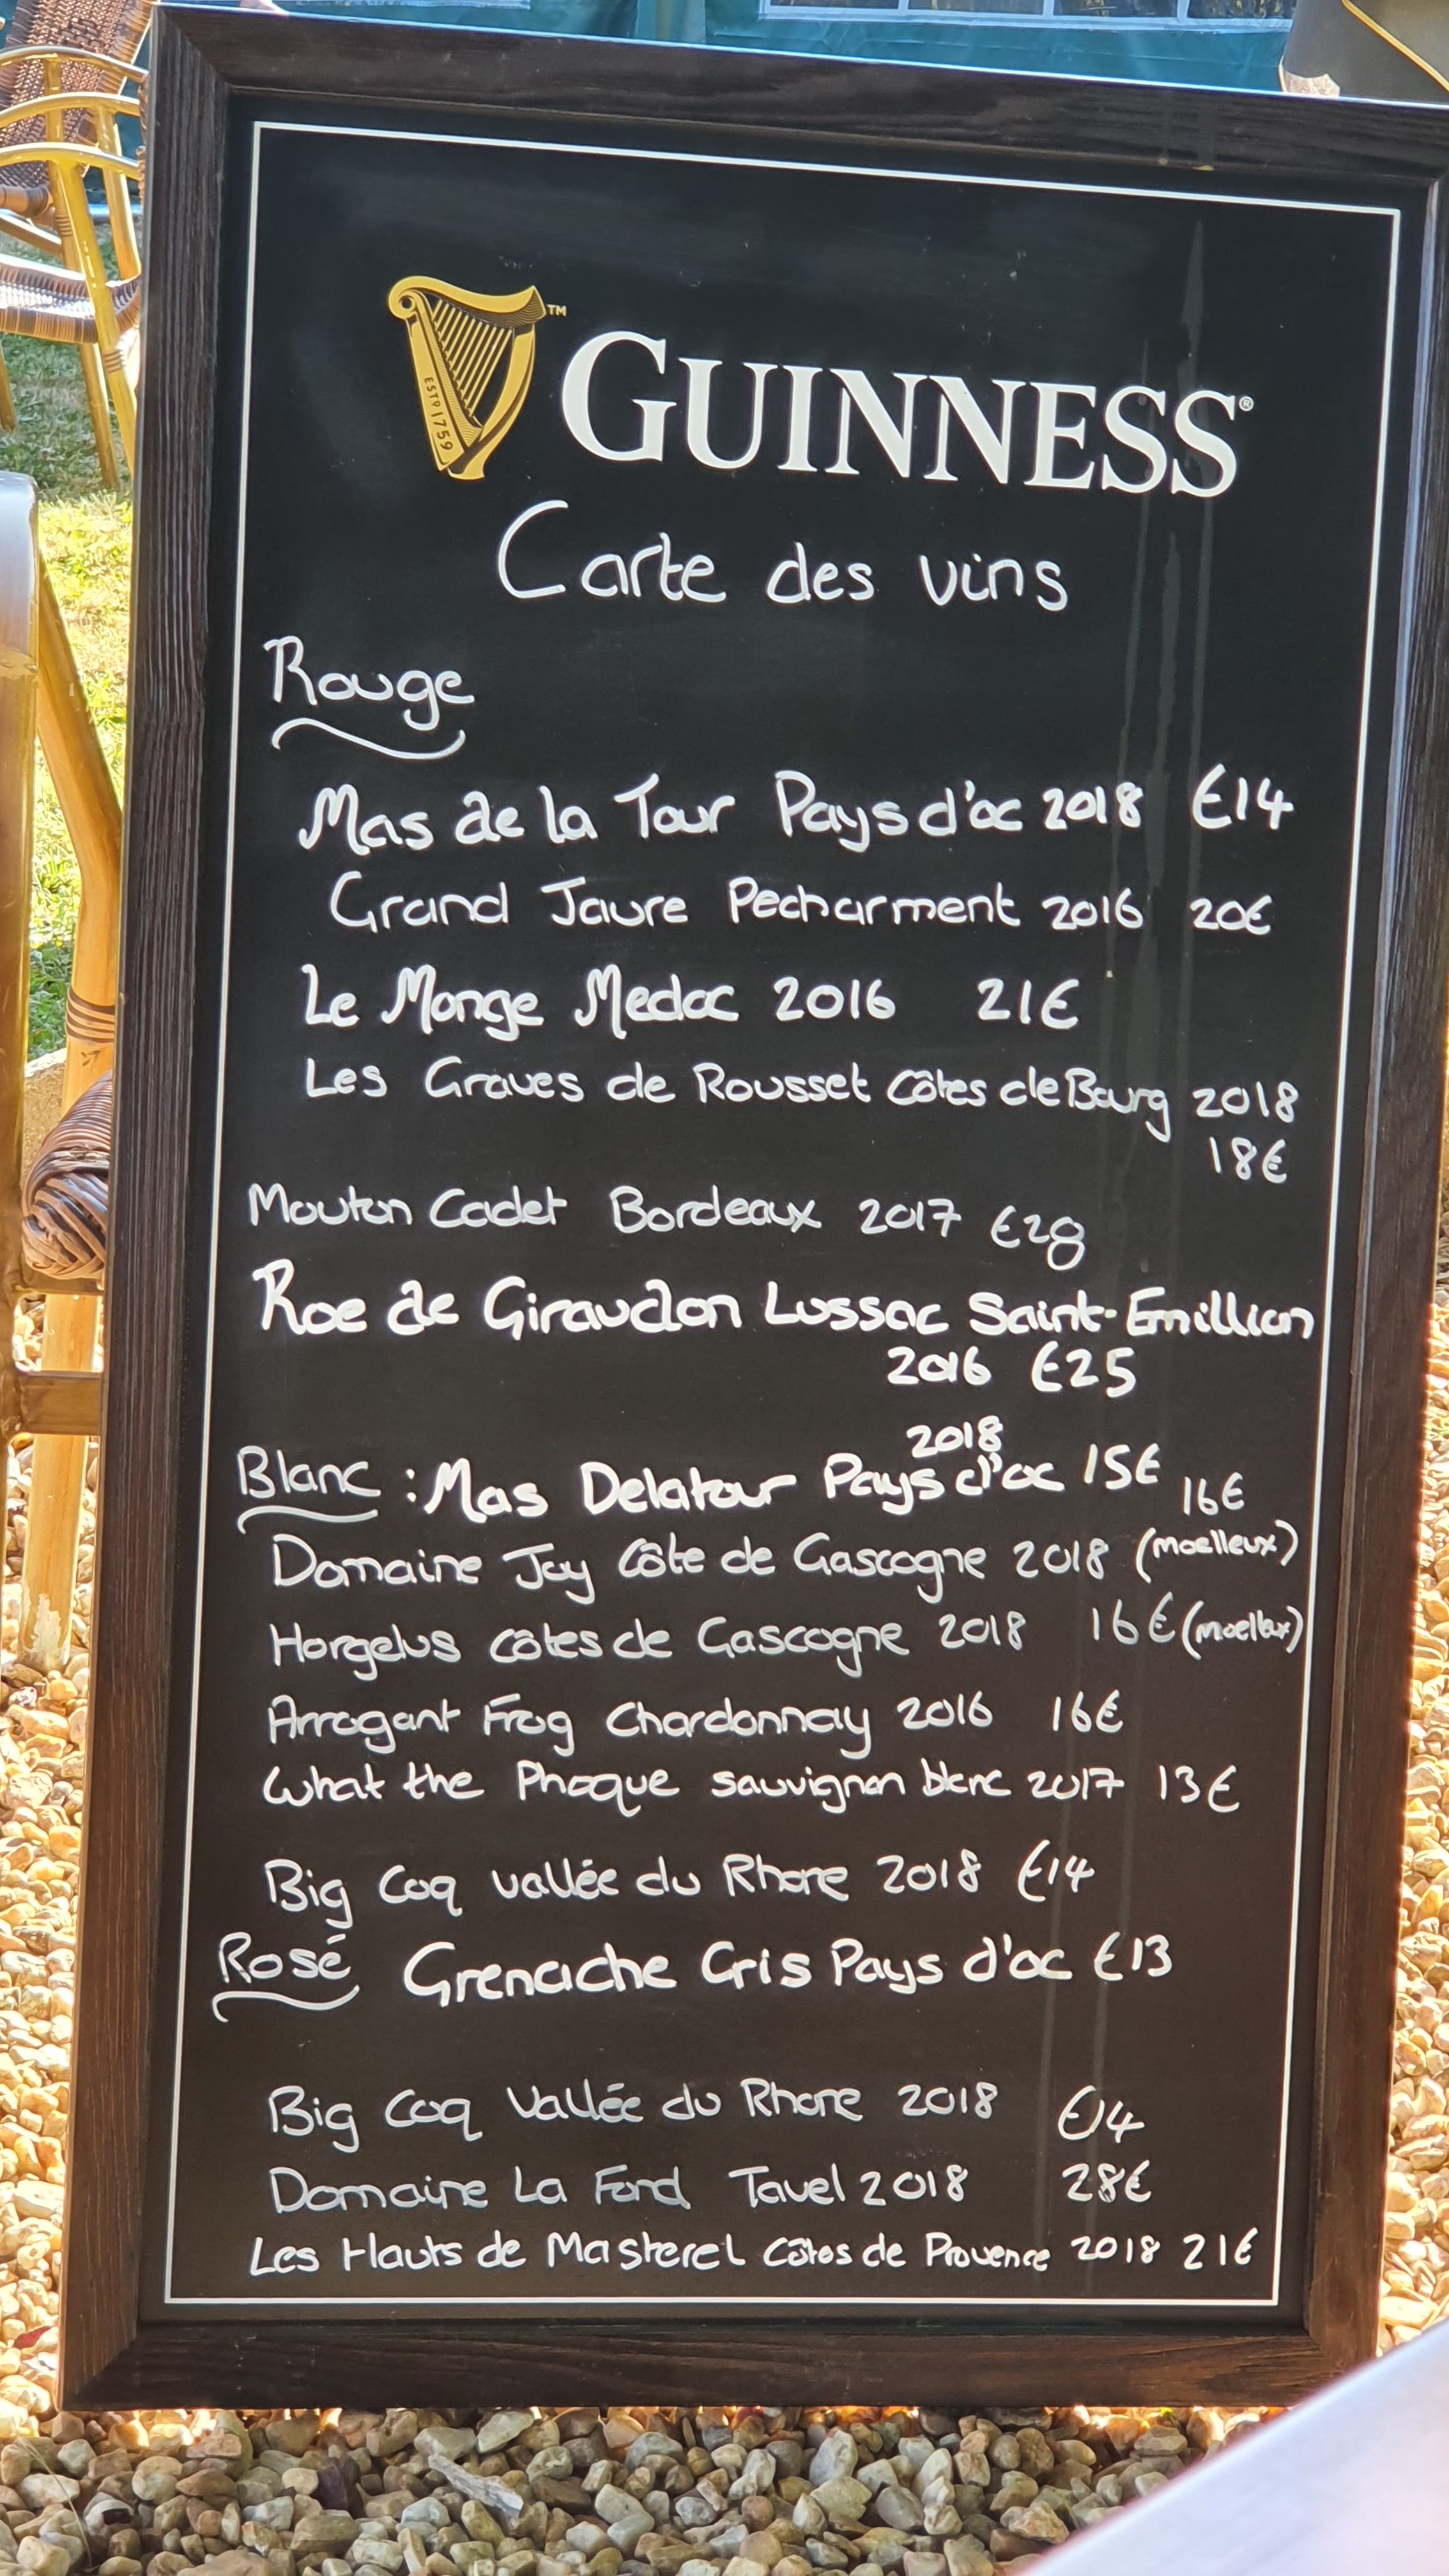 ESTD 1759
TM
GUINNESS®
Carte des vins
Rouge
Mas de la Tour Pays d'oc 2018 €14
Grand Jaure Pecharment 2016 20€
Le Monge Medoc 2016 21€
Les Graves de Rousset Côtes de Bourg 2018
18€
Mouton Cadet Bordeaux 2017 €28
Roe de Giraudon Lussac Saint-Emillion
2016 €25
2018
Blanc : Mas Delatour Pays d'oc 15€
16€
Domaine Joy Côte de Gascogne 2018 (moelleux)
Horgelus côtes de Gascogne 2018 16€ (moelleux)
Arrogant Frog Chardonnay 2016 16€
What the Phoque sauvignon blanc 2017 13€
Big Coq vallée du Rhone 2018 €14
Rosé Grenache Gris Pays d'oc €13
Big Coq Vallée du Rhone 2018 €14
Domaine La Ford Tavel 2018 28€
Les Hauts de Masterel Côtes de Provence 2018 21€